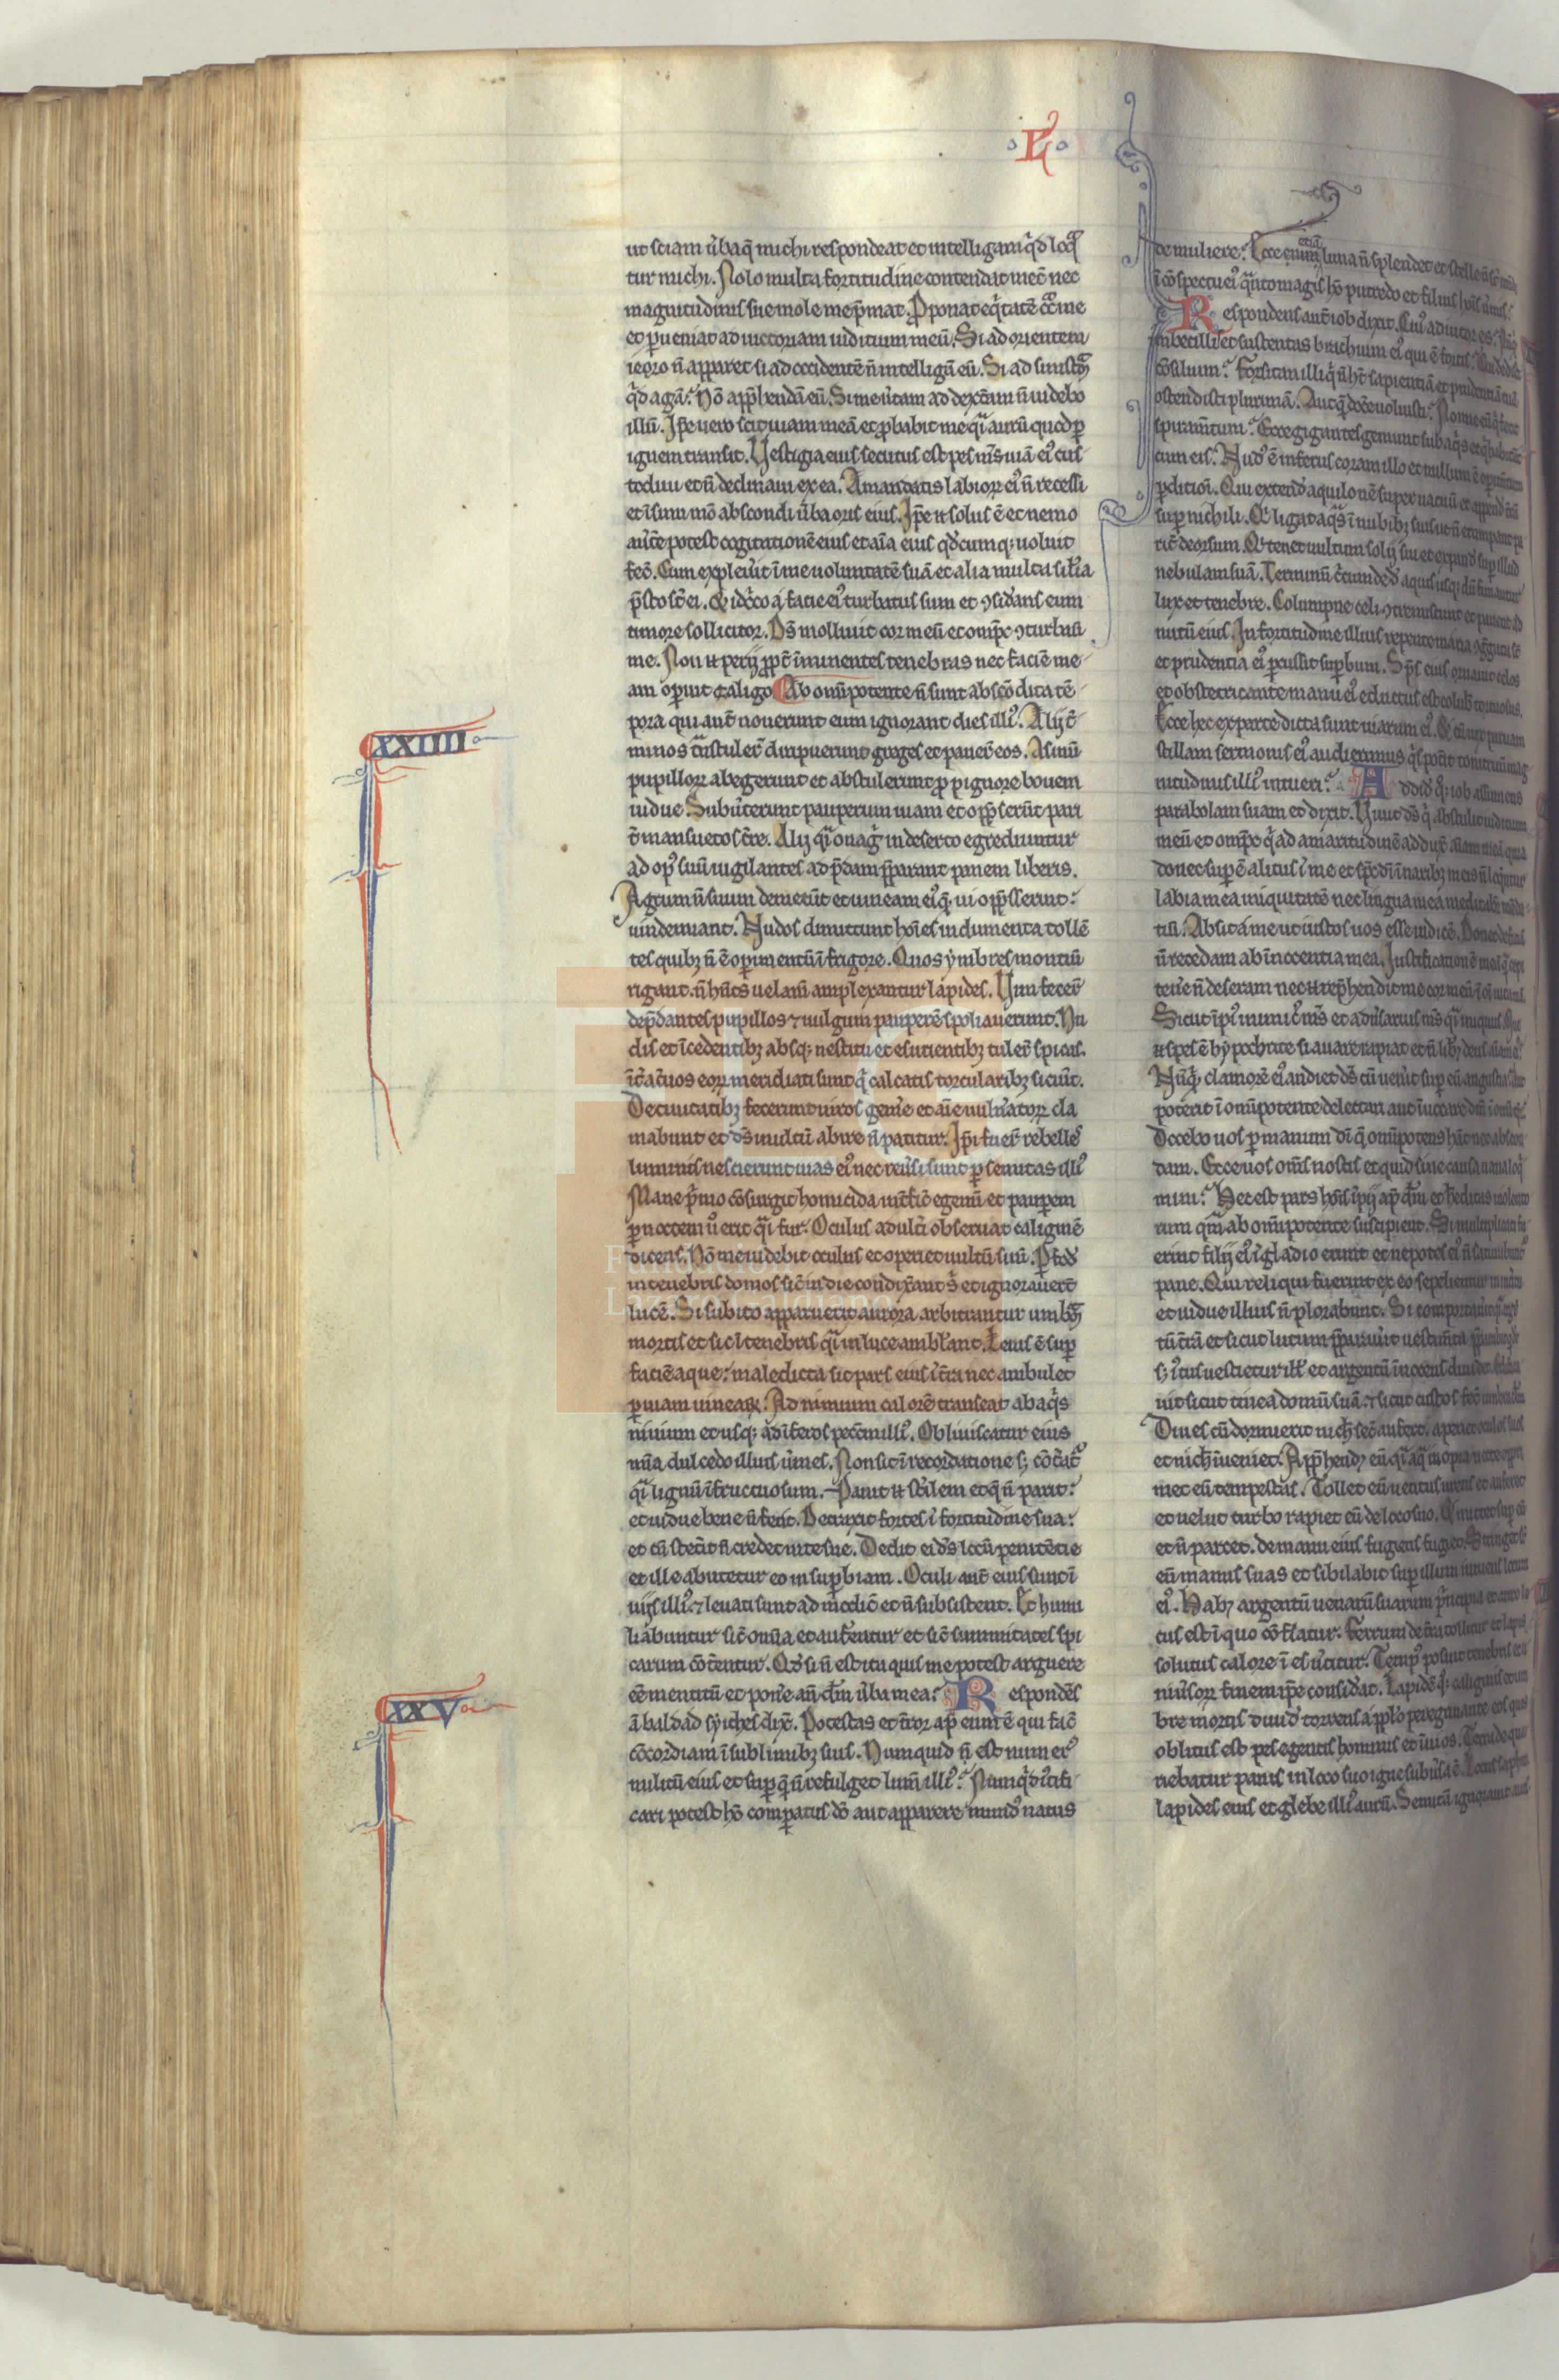 L
ut sciam ũba q̃ michi respondeat et intelligam qͥd loqͣ
tur michi. Nolo multa fortitudine contendat mecũ nec
magnitudinis sue mole me p̃mat. Pponat eqͥtatẽ cͦtͣ me
et pueniat ad uictoriam iudicium meũ. Si ad orientem
iero ñ apparet si ad occidentẽ ñ intelligã eũ. Si ad sinistͣ
qͥd agã? Nõ app̃hendã eũ. Si me ũtam ad dextͣm ñ uidebo
illũ. Ip̃e uero scit uiam meã et pbabit me qͣi aurũ quod p
ignem transit. Uestigia eius secutus est pes mͥs uiã eiꝰ cus
todiui et ñ declinaui ex ea. A mandatis labioꝝ eiꝰ ñ recessi
et ĩ sinu mõ abscondi ũba oris eius. Ip̃e n̄ solus ẽ et nemo
aũte potest cogitationẽ eius et aĩa eius qͦdcumq; uoluit
fecͭ. Cum expleũit ĩ me uoluntatẽ suã et alia multa sil̃ia
p̃sto sͭ ei. Et idcͦo a facie eiꝰ turbatus sum et ꝯsidãns eum
timore sollicitor. Ds̃ molliuit cor meũ et omp̃c ꝯturbaui
me. Non n̄ perij pp̃t ĩminentes tenebras nec faciẽ me
am opuit caligo. Ab omĩpotente ñ sunt abscõdita tẽ
pora qui aũt nouerunt eum ignorant dies illiꝰ. Alij t̃
minos tͣnstuleꝛͭ diripuerunt greges et paueꝛͭ eos. Asinũ
XXIIII
pupilloꝝ abegerunt et abstulerunt p pignore bouem
uidue. Subũterunt pauperum uiam et opp̃serũt pari
t̃ mansuetos tͤre. Alij qͣi onagͥ in deserto egrediuntur
ad opꝰ suũ uigilantes ad p̃dam pparant panem liberis.
Agrum ñ suum demetũt et uineam eiꝰ q̃ ui opp̃sserint?
uindemiant. Nudos dimittunt hoĩes indumenta tollẽ
tes quibꝫ ñ ẽ opimentũ ĩ frigore. Quos ymbres montiũ
rigant. ñ hñtes uelam̃ amplexantur lapides. Uim feceꝛͭ
dep̃dantes pupillos ⁊ uulgum pauperẽ spoliauerunt. Nu
dis et ĩcedentibꝫ absq; uestitu et esurientibꝫ tuleꝛͭ spicas.
ĩt̃ ac̃uos eoꝝ meridiati sunt qͥ calcatis torcularibꝫ siciũt.
De ciuitatibꝫ fecerunt uiros gem̃e et aĩe uulñatoꝝ cla
mabunt et ds̃ inultũ abire ñ patitur. Ip̃i fueꝛͭ rebelles
luminis nescierunt uias eiꝰ nec reũsi sunt p semitas illiꝰ
Mane pͥmo cõsurgit homicida int̃ficͭ egenũ et paupem
p noctem ũ erit qͣi fur. Oculus adult̃i obseruat caliginẽ
dicens. Nõ me uidebit oculus et operiet uultũ suũ. Pfodͭ
in tenebris domos sicͭ in die condixͣant sͥ et ignorauerũt
lucẽ. Si subito apparuerit aurora arbitrantur umbͣ
mortis et sic ĩ tenebris qͣi in luce ambl̃ant. Leuis ẽ sup
faciẽ aque: maledicta sit pars eius ĩ t̃ra nec ambulet
p uiam uineaꝝ. Ad nimium calorẽ transeat ab aqͥs
niuium et usq; ad ĩferos pecc̃m illiꝰ. Obliuiscatur eius
mĩa dulcedo illius ũmes. Non sit ĩ recordatione sꝫ cõt̃atͬ
qͣi lignũ ĩfructuosum. Pauit n̄ st̃ilem et q̃ ñ parit:
et uidue bene ñ fecit. Detraxit fortes ĩ fortitudine sua:
et cũ stet̃it ñ credet uite sue. Dedit ei ds̃ locũ penitẽtie
et ille abutetur eo in supbiam. Oculi aũt eius sunt ĩ
uijs illiꝰ. ⁊ leuati sunt ad modicͭ et ñ subsistent. Et humi
liabuntur sicͭ om̃ia et auferentur et sicͭ summitates spi
carum cõt̃entur. Qͦd si ñ est ita quis me potest arguere
ẽe mentitũ et pon̄e añ dm̃ ũba mea? Respondẽs
XXV
ã baldad syithes dixͭ. Potestas et tͤror ap̃ eum ẽ qui facͭ
cõcordiam ĩ sublimibꝫ suis. Numquid ñ est numerꝰ
militũ eius et sup q̃ ñ refulget lum̃ illiꝰ? Numqͥd iͭtifi
cari potest hõ compatus dõ aut apparere mundꝰ natus
de muliere? Ecce etiã luna ñ splendet et stelle ñ sͭ mũd
ĩ cõspectu eiꝰ qͣnto magis hõ putredo et filius hoĩs ũmis?
Respondens aũt iob dixit. Cuiꝰ adiutor es?
imbecillis et sustentas brachium eiꝰ qui ẽ fortis?
cõsilium? Forsitan illi q̃ ñ ht̃ sapientiã et prudentiã tuã
ostendisti plurimã. Aut qͤ docͤe uoluisti? Nonne eũ q̃ fecit
spiram̃tum? Ecce gigantes gemunt sub aqͥs et qͥ habitãt
cum eis. Nudꝰ ẽ infernus coram illo et nullum ẽ opim̃tum
pditiõi. Qui extendͭ aquilonẽ super uacuũ et appendͭ t̃ã
sup nichili. Qͥ ligat aqͣs ĩ nubibꝫ suis ut ñ erumpant pa
ritͭ deorsum. Qͥ tenet uultum solij sui et expandͭ sup illud
nebulam suã. Terminũ cͥcumdedͭ aquis usq; dũ finiantur
lux et tenebre. Columpne celi ꝯtremiscunt et pauent ad
nutũ eius. In fortitudine illius repente maria ꝯgͥgata sͭ
et prudentia eiꝰ pcussit supbum. Sp̃s eius ornauit celos
et obstetricante manu eiꝰ eductus est colubͬ tortuosus.
Ecce hec ex parte dicta sunt uiarum eiꝰ. Et cũ uix paruam
stillam sermonis eiꝰ audierimus qͥs pot̃it tonitruũ mag
nitudinis illiꝰ intueri? Addidͭ q̃; iob assumens
parabolam suam et dixit. Uiuit ds̃ qͥ abstulit iudicium
meũ et omp̃c qͥ ad amaritudinẽ adduxͭ aĩam meã quia
donec supẽ alitus ĩ me et sp̃c dĩ ĩ naribꝫ meis ñ loq̃ntur
labia mea iniquitatẽ nec lingua mea meditabitͬ mẽda
tiũ. Absit a me ut iustos uos esse iudicẽ. Donec deficiã
ñ recedam ab ĩnocentia mea. Iustificationẽ meã q̃ cepi
ten̄e ñ deseram nec n̄ rep̃hendit me cor meũ ĩ oĩ uita mea
Sicut ĩpiꝰ inimicͥ mͥs et adũsarius mͥs qͣi iniquus. Que
n̄ spes ẽ hypochrite si auare rapiat et ñ libꝫ deus aĩam eiꝰ?
Nũqͥd clamorẽ eiꝰ audiet ds̃ cũ ueñit sup eũ angustia? Aut
poterit ĩ omĩpotente delectari aut ĩuocare dm̃ ĩ om̃i tp̃e?
Docebo uos p manum dĩ q̃ omĩpotens hẽat nec abscon
dam. Ecce uos om̃s nostis et quid sine causa uana loqͥ
mini? Hec est pars hoĩs ĩpij ap̃ dm̃ et h̃editas uiolento
rum qͣm ab omĩpotente suscipient. Si multiplicati fu
erint filij eiꝰ ĩ gladio erunt et nepotes eiꝰ ñ saturabuntͬ
pane. Qui reliqui fuerint ex eo sepelientur in int̃itu
et uidue illius ñ plorabunt. Si comportaũit qͣi
tũ t̃rã et sicut lutum pparaũit uestim̃ta pparabit qͥdẽ
sꝫ iͭtus uestietur illͭ et argentũ ĩnocens diuidet. Edifica
uit sicut tinea domũ suã. ⁊ sicut custos fecͭ umbraclm
Diues cũ dormierit nich̃ secũ auferet. aperiet oculos suos
et nich̃ ĩueniet. App̃hendꝫ eũ qͣi aqͣ inopia nocte oppri
met eũ tempestas. Tollet eũ uentus urens et auferet
et uelut turbo rapiet eũ de loco suo. Et mittet sup eũ
et ñ parcet. de manu eius fugiens fugiet. Stringet sͣ
eũ manus suas et sibilabit sup illum intuens locum
eiꝰ. Habꝫ argentũ uenarũ suarum pͥncipia et auro lo
cus est ĩ quo cõflatur. Ferrum de t̃ra tollitur et lapis
solutus calore ĩ es ũtitur. Tempꝰ posuit tenebris et u
niũsoꝝ finem ip̃e considãt. Lapidẽ q̃; caliginis et um
bre mortis diuidͭ torrens a pplo peregrinante eos quos
oblitus est pes egentis hominis et ĩuios. Terra de qua
oriebatur panis in loco suo igne subũsa ẽ. Locus saphiri
lapides eius et glebe illiꝰ aurũ. Semitã ignorauit auis